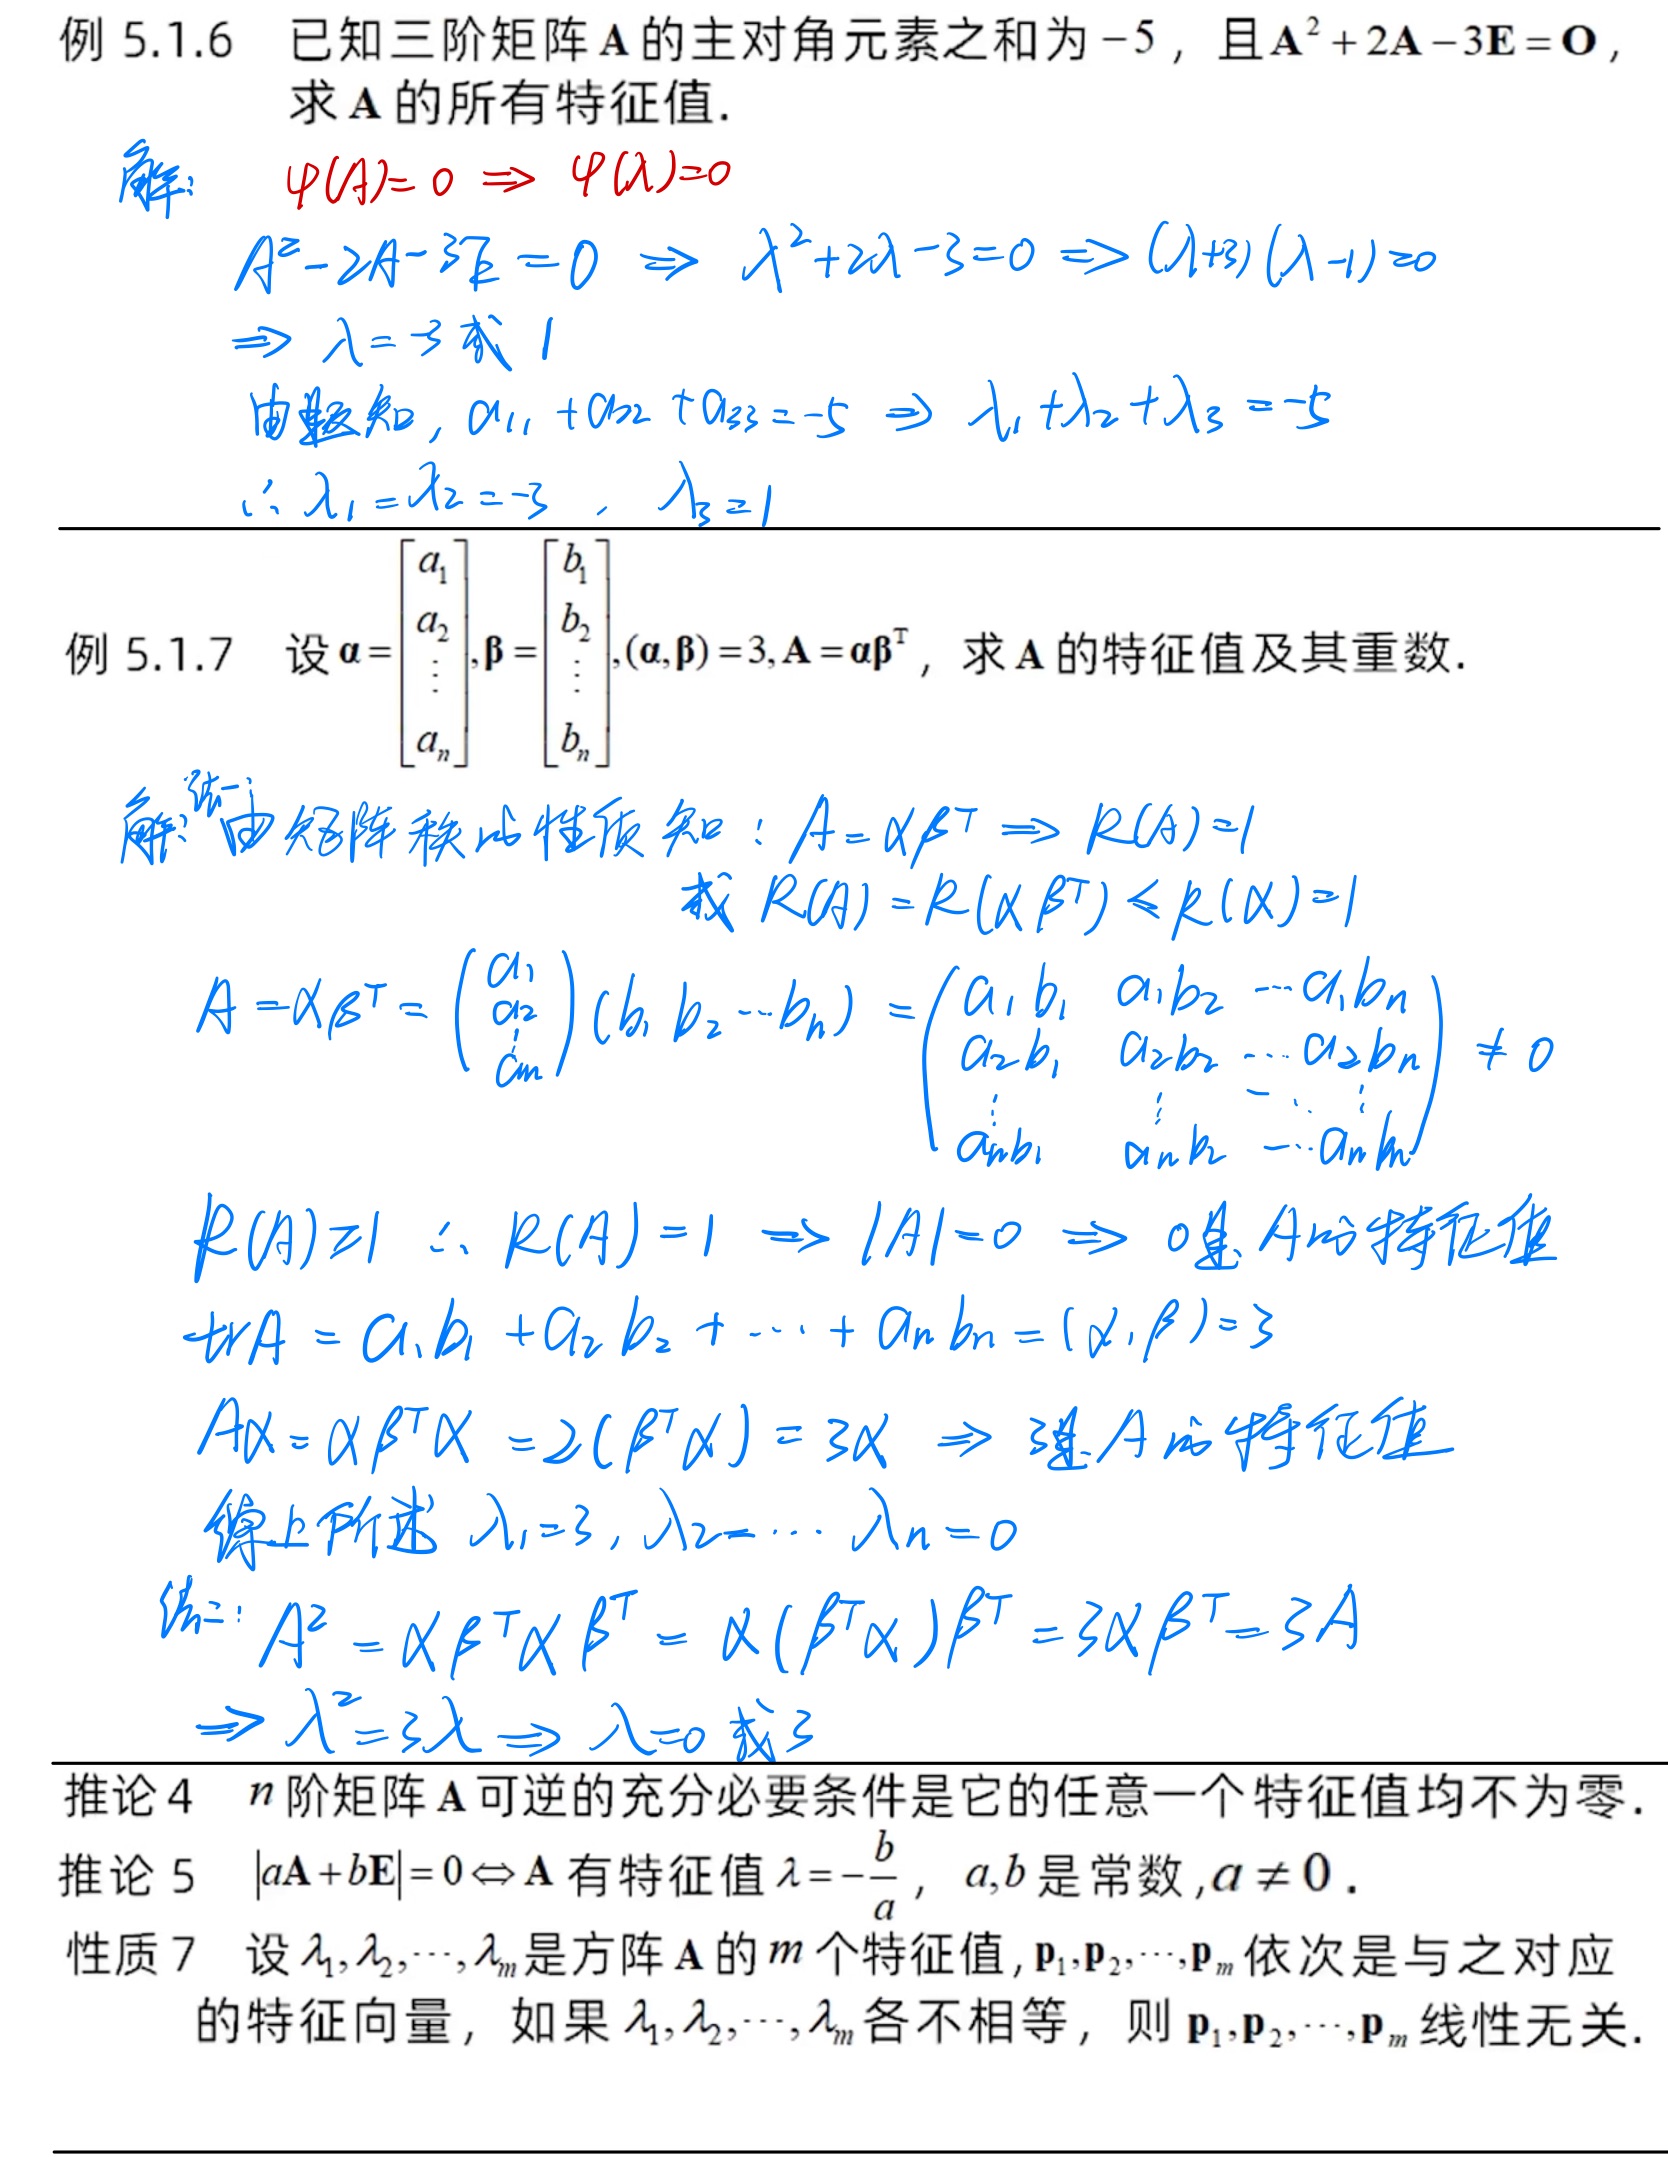 例 5.1.6 已知三阶矩阵 A 的主对角元素之和为 −5，且 A² + 2A − 3E = O，
求 A 的所有特征值.
解: φ(A)=0 ⇒ φ(λ)=0
A²−2A−3E=0 ⇒ λ²+2λ−3=0 ⇒ (λ+3)(λ−1)=0
⇒ λ=−3或1
由题知, a₁₁+a₂₂+a₃₃=−5 ⇒ λ₁+λ₂+λ₃=−5
∴ λ₁=λ₂=−3, λ₃=1
例 5.1.7 设 α = [a₁ a₂ ⋮ aₙ], β = [b₁ b₂ ⋮ bₙ], (α,β) = 3, A = αβᵀ，求 A 的特征值及其重数.
解: 法一: 由矩阵秩的性质知: A=αβᵀ ⇒ R(A)=1
或 R(A)=R(αβᵀ)≤R(α)=1
A=αβᵀ=(a₁ a₂ ⋮ aₙ)(b₁ b₂ ⋯ bₙ)=(a₁b₁ a₁b₂ ⋯ a₁bₙ
a₂b₁ a₂b₂ ⋯ a₂bₙ
⋮ ⋮ ⋱ ⋮
aₙb₁ aₙb₂ ⋯ aₙbₙ) ≠ 0
R(A)≥1 ∴ R(A)=1 ⇒ |A|=0 ⇒ 0是A的特征值
trA=a₁b₁+a₂b₂+⋯+aₙbₙ=(α,β)=3
Aα=αβᵀα=2(βᵀα)=3α ⇒ 3是A的特征值
综上所述 λ₁=3, λ₂=⋯λₙ=0
法二: A²=αβᵀαβᵀ=α(βᵀα)βᵀ=3αβᵀ=3A
⇒ λ²=3λ ⇒ λ=0或3
推论 4 n 阶矩阵 A 可逆的充分必要条件是它的任意一个特征值均不为零.
推论 5 |aA+bE|=0⇔A 有特征值 λ=−b/a， a,b 是常数,a ≠ 0 .
性质 7 设 λ₁,λ₂,⋯,λₘ 是方阵 A 的 m 个特征值,p₁,p₂,⋯,pₘ 依次是与之对应
的特征向量，如果 λ₁,λ₂,⋯,λₘ 各不相等，则 p₁,p₂,⋯,pₘ 线性无关.